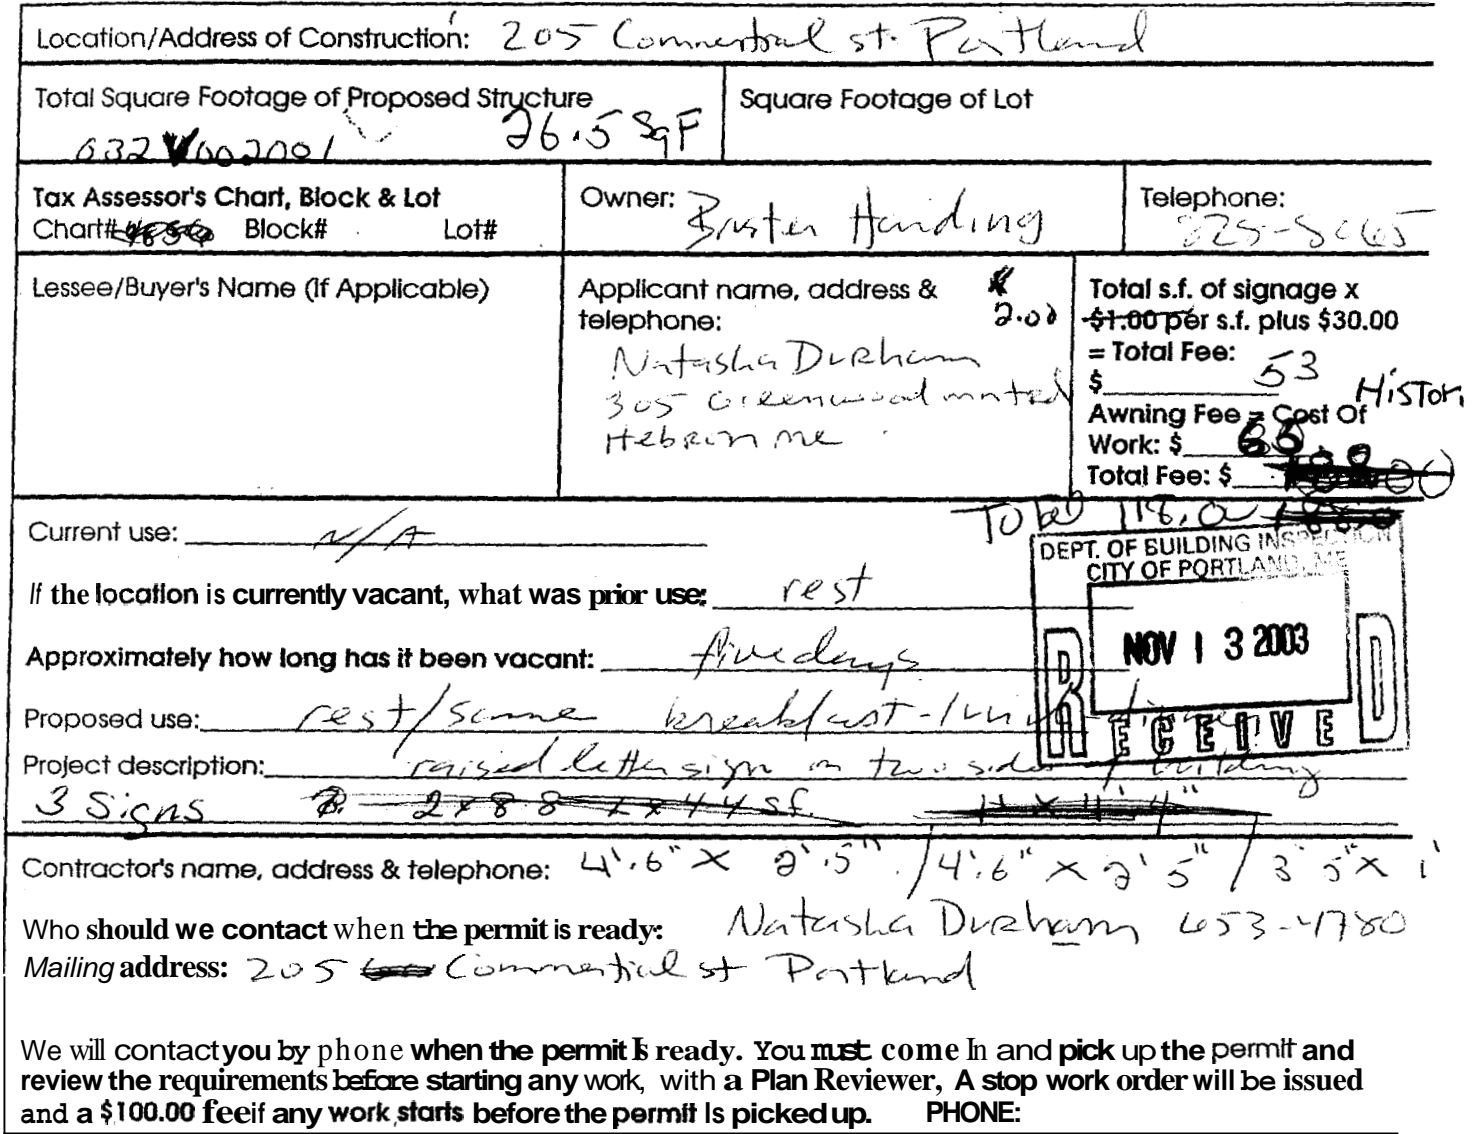 Location/Address of Construction: 205 Commertial st. Portland
Total Square Footage of Proposed Structure 26.5 SqF
Square Footage of Lot
032 002001
Tax Assessor's Chart, Block & Lot
Chart# Block# Lot#
Owner: Buster Harding
Telephone:
Lessee/Buyer's Name (If Applicable)
Applicant name, address &
telephone:
Natasha Durham
305 Greenwood
Hebron me
$
2.00
Total s.f. of signage x
$1.00 per s.f. plus $30.00
= Total Fee:
$ 53
Histori
Awning Fee = Cost Of
Work: $
Total Fee: $
Total 118.0
Current use: N/A
If the location is currently vacant, what was prior use: rest
Approximately how long has it been vacant: five days
Proposed use: rest/same breakfast-lunch-dinner
Project description: raised letter sign on two sides / building
3 Signs 2 x 8 8 2 x 4 4 sf. 4"
DEPT. OF BUILDING INSPECTION
CITY OF PORTLAND, ME
NOV 13 2003
RECEIVED
Contractor's name, address & telephone: 4'.6" x 2'.5" / 4'.6" x 2' 5" / 3' 5" x 1'
Who should we contact when the permit is ready: Natasha Durham 653-4780
Mailing address: 205 Commertial st Portland
We will contact you by phone when the permit is ready. You must come in and pick up the permit and
review the requirements before starting any work, with a Plan Reviewer, A stop work order will be issued
and a $100.00 fee if any work starts before the permit is picked up. PHONE: